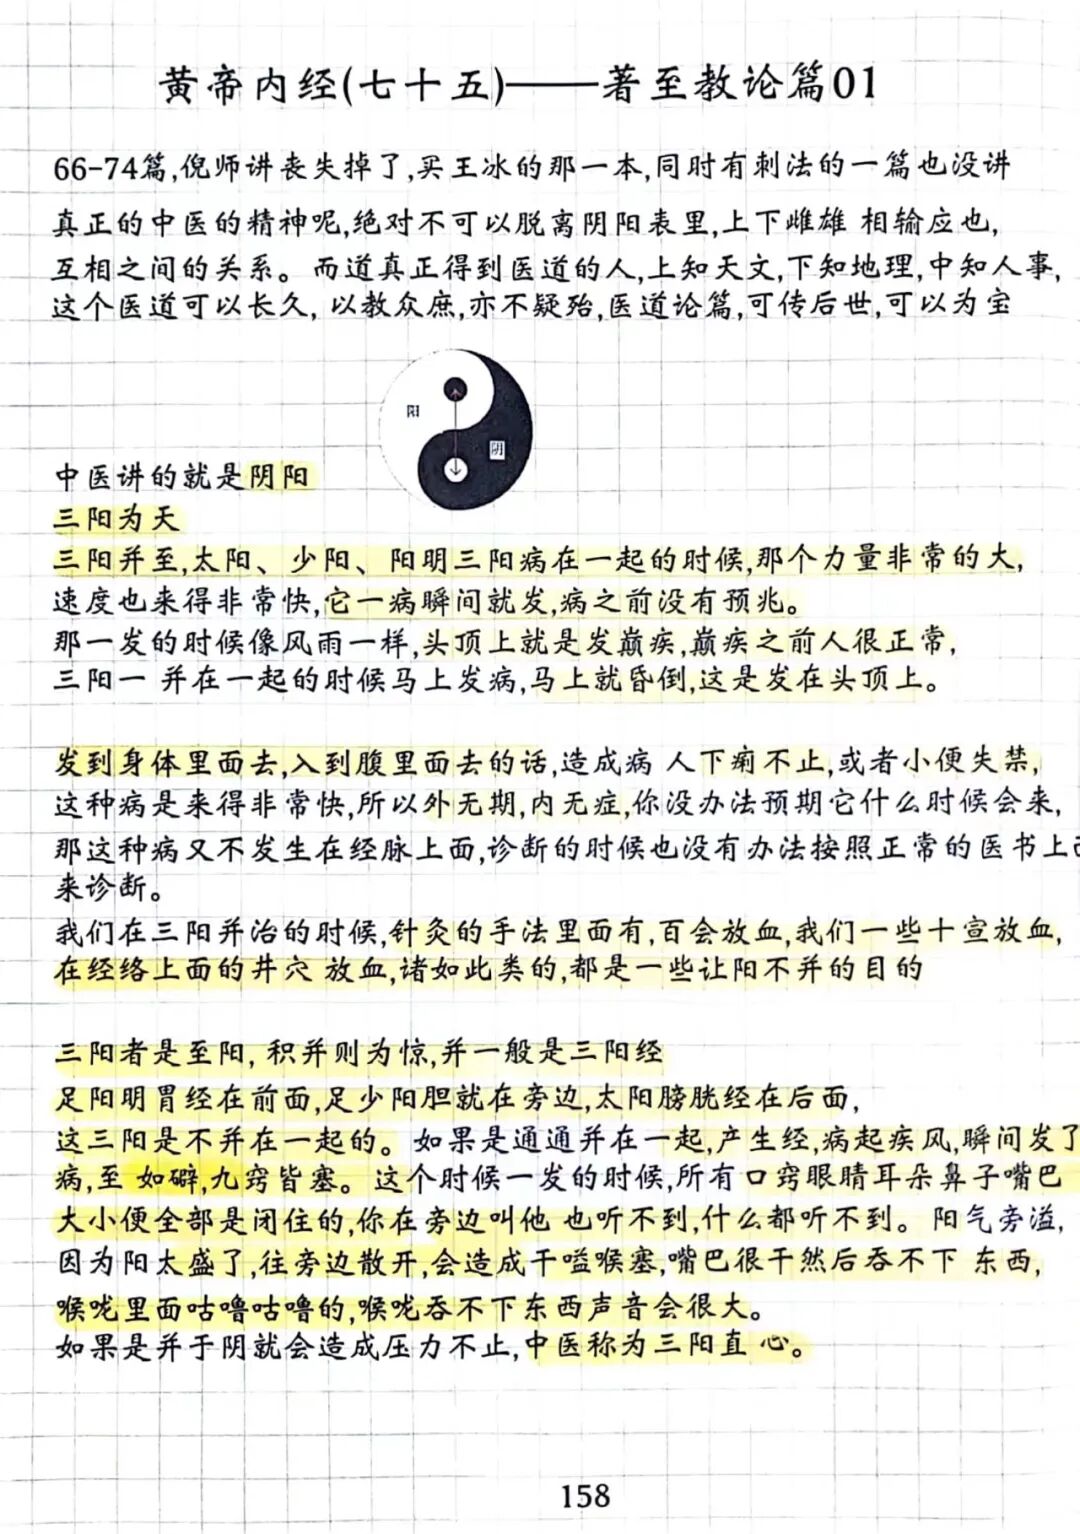 黄帝内经(七十五)——著至教论篇01
66-74篇,倪师讲丧失掉了,买王冰的那一本,同时有刺法的一篇也没讲
真正的中医的精神呢,绝对不可以脱离阴阳表里,上下雌雄 相输应也,
互相之间的关系。而道真正得到医道的人,上知天文,下知地理,中知人事,
这个医道可以长久, 以教众庶,亦不疑殆,医道论篇,可传后世,可以为宝
阳
阴
中医讲的就是阴阳
三阳为天
三阳并至,太阳、少阳、阳明三阳病在一起的时候,那个力量非常的大,
速度也来得非常快,它一病瞬间就发,病之前没有预兆。
那一发的时候像风雨一样,头顶上就是发巅疾,巅疾之前人很正常,
三阳一 并在一起的时候马上发病,马上就昏倒,这是发在头顶上。
发到身体里面去,入到腹里面去的话,造成病 人下痢不止,或者小便失禁,
这种病是来得非常快,所以外无期,内无症,你没办法预期它什么时候会来,
那这种病又不发生在经脉上面,诊断的时候也没有办法按照正常的医书上
来诊断。
我们在三阳并治的时候,针灸的手法里面有,百会放血,我们一些十宣放血,
在经络上面的井穴 放血,诸如此类的,都是一些让阳不并的目的
三阳者是至阳, 积并则为惊,并一般是三阳经
足阳明胃经在前面,足少阳胆就在旁边,太阳膀胱经在后面,
这三阳是不并在一起的。如果是通通并在一起,产生经,病起疾风,瞬间发了
病,至 如礔,九窍皆塞。这个时候一发的时候,所有 口窍眼睛耳朵鼻子嘴巴
大小便全部是闭住的,你在旁边叫他 也听不到,什么都听不到。阳气旁溢,
因为阳太盛了,往旁边散开,会造成干嗌喉塞,嘴巴很干然后吞不下 东西,
喉咙里面咕噜咕噜的,喉咙吞不下东西声音会很大。
如果是并于阴就会造成压力不止,中医称为三阳直 心。
158